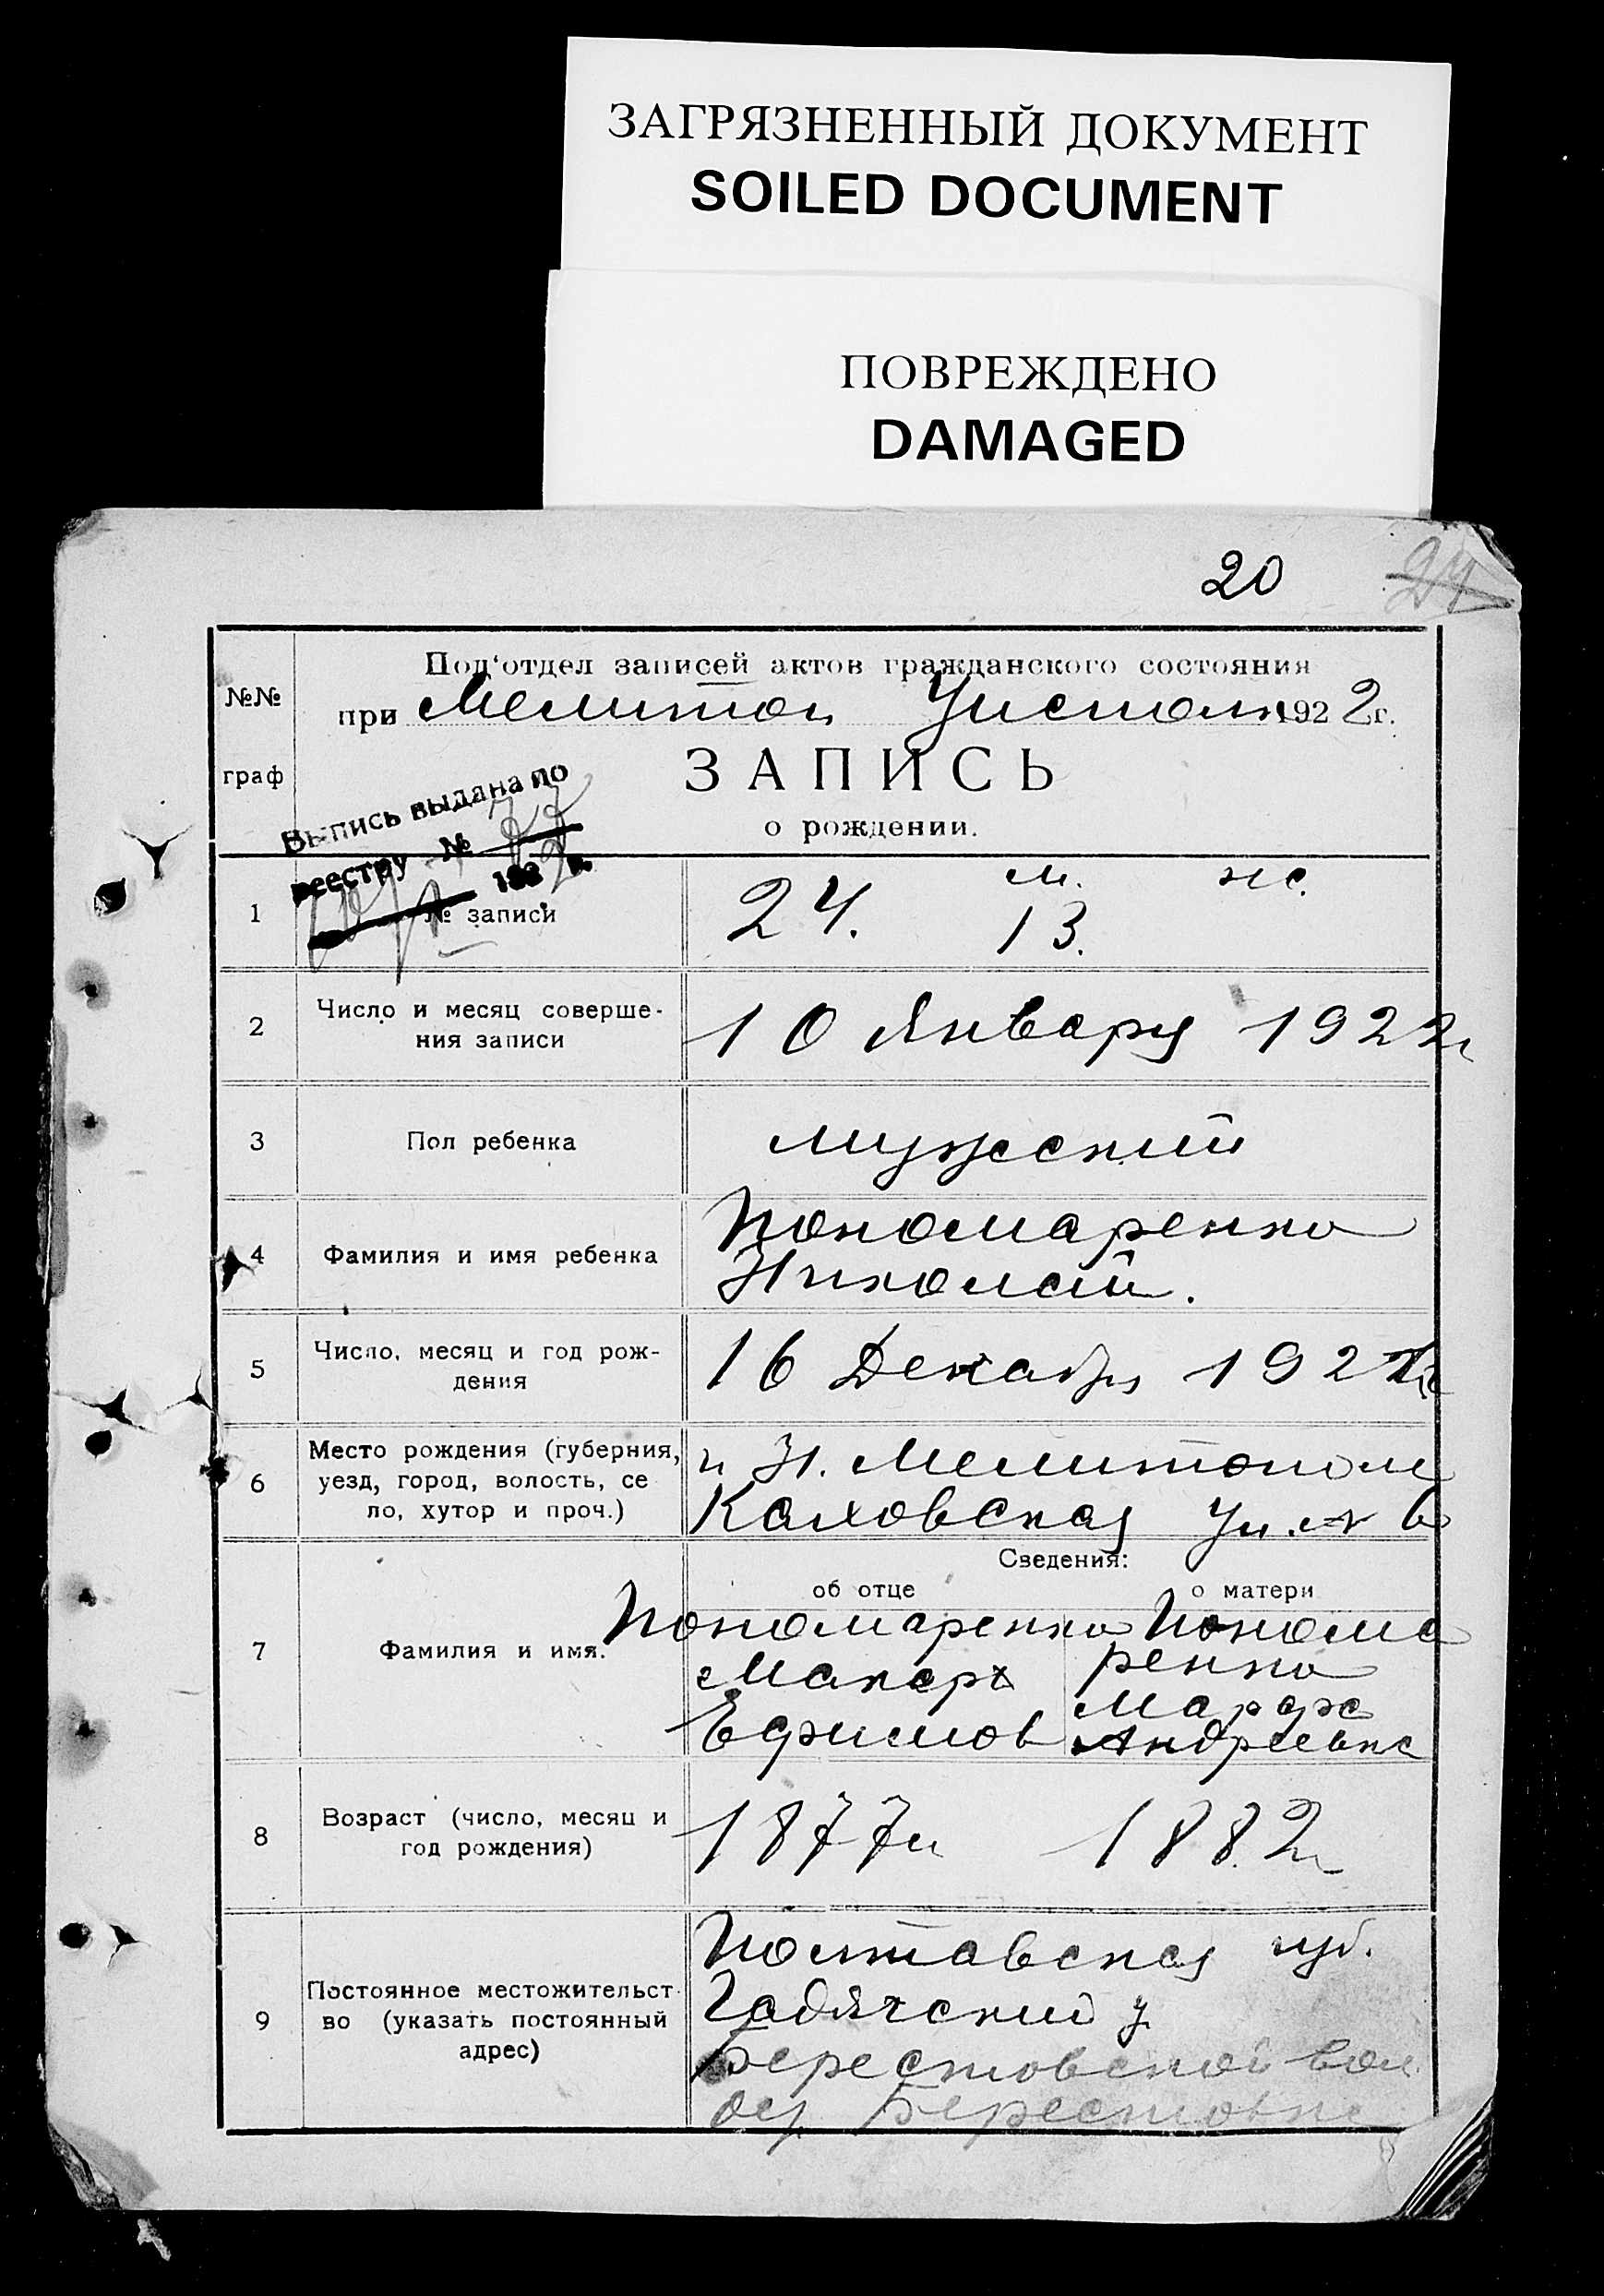 ЗАГРЯЗНЕННЫЙ ДОКУМЕНТ
SOILED DOCUMENT
ПОВРЕЖДЕНО
DAMAGED
20
24
№№
граф
Под'отдел записей актов гражданского состояния
при Мелитоп Уисполк 1922 г.
ЗАПИСЬ
о рождении.
Выпись выдана по
реестру №
1 № записи 24. м. 13. ж.
2 Число и месяц соверше-
ния записи 10 Январу 1922 г
3 Пол ребенка мужеский
4 Фамилия и имя ребенка Пономаренко
Николай.
5 Число, месяц и год рож-
дения 16 Декабря 192
6 Место рождения (губерния,
уезд, город, волость, се
ло, хутор и проч.)
г Н. Мелитополь
Каховская ул.
Сведения:
об отце о матери
7 Фамилия и имя.
Пономаренко
Макар
Ефимов
Понома
ренко
Марфа
Андреевна
8 Возраст (число, месяц и
год рождения) 1877 г 1882 г
9 Постоянное местожительст
во (указать постоянный
адрес)
Полтавская губ.
Гадячский у
Берестовской вол.
дер. Берестовке